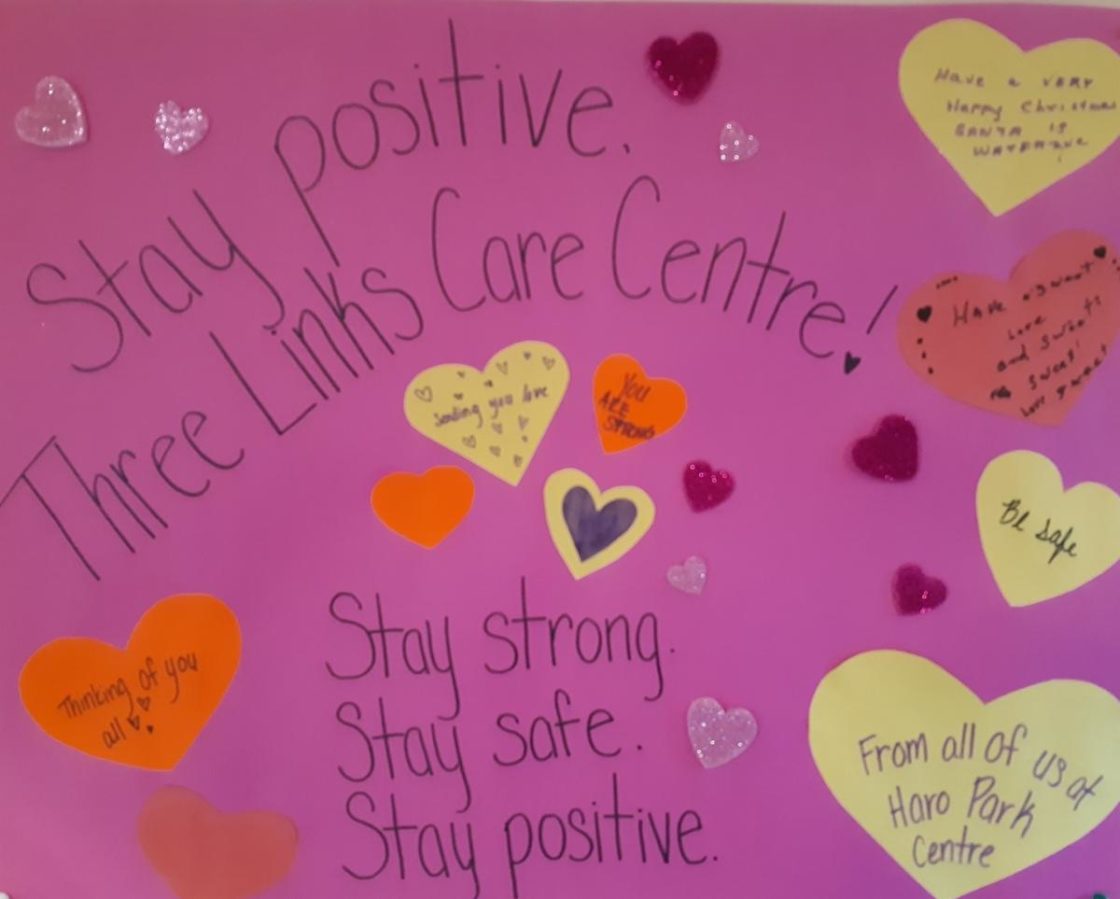 Stay positive.
Three Links Care Centre!
Have a VERY
Happy Christmas
SANTA IS
sending you love
YOU
ARE
STRONG
HAVE a sweet
Love
and sweets
sweet!
Love
Be safe
Thinking of you
all
Stay strong.
Stay safe.
Stay positive.
From all of us at
Haro Park
Centre